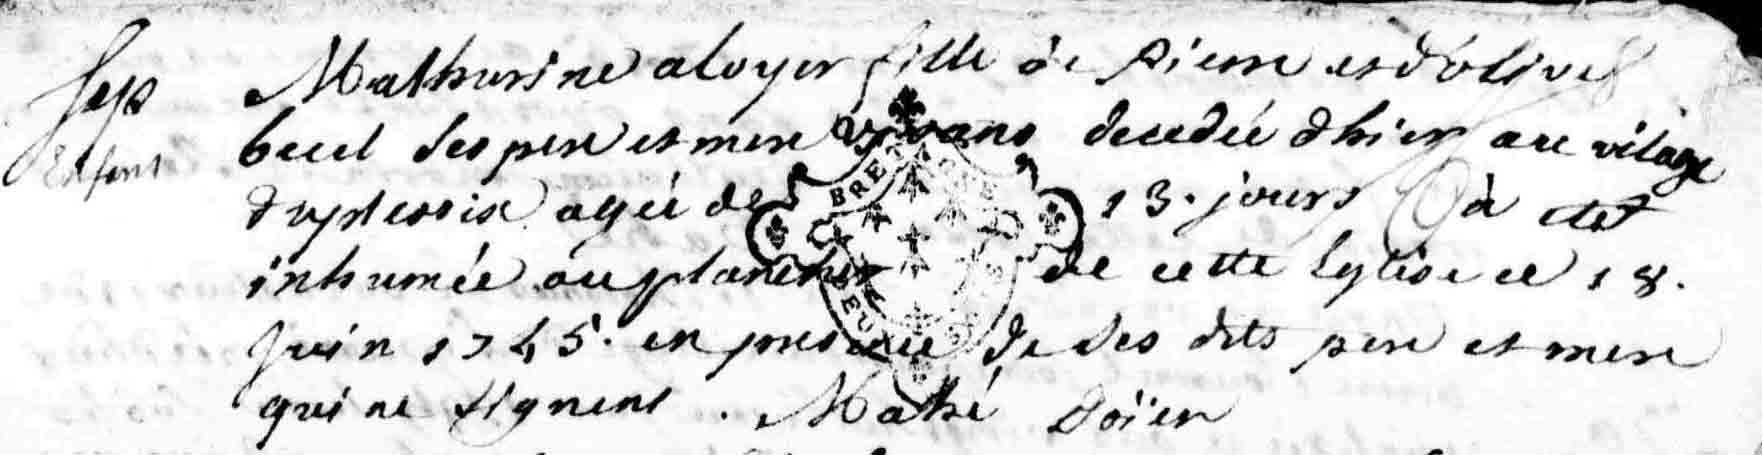 Sep Mathurine aloyer fille de Pierre et d'olive
Enfant becel ses pere et mere vivans decedée d'hier au vilage
duplessix agée de 13. jours à eté
inhumée au plancher de cette Eglise ce 18.
juin 1745. en presence de ses dits pere et mere
qui ne signent . Mahé Doïen
BRETAGNE